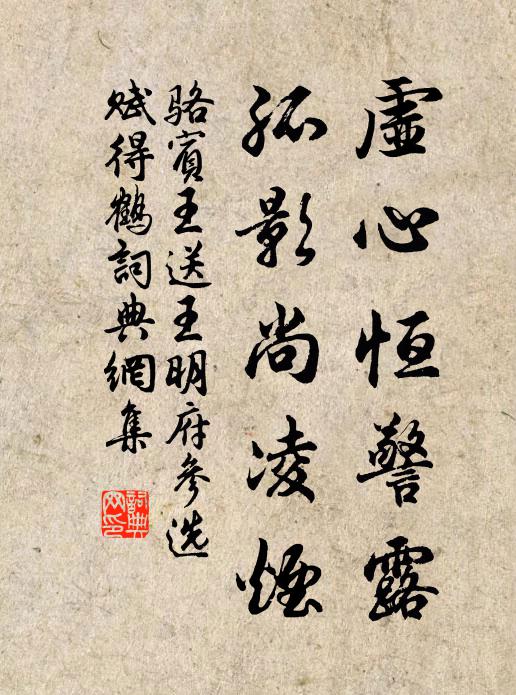 虛心恒警露
孤影尚凌煙
駱賓王送王明府參选
賦得鶴詞典網集
詞典
网印